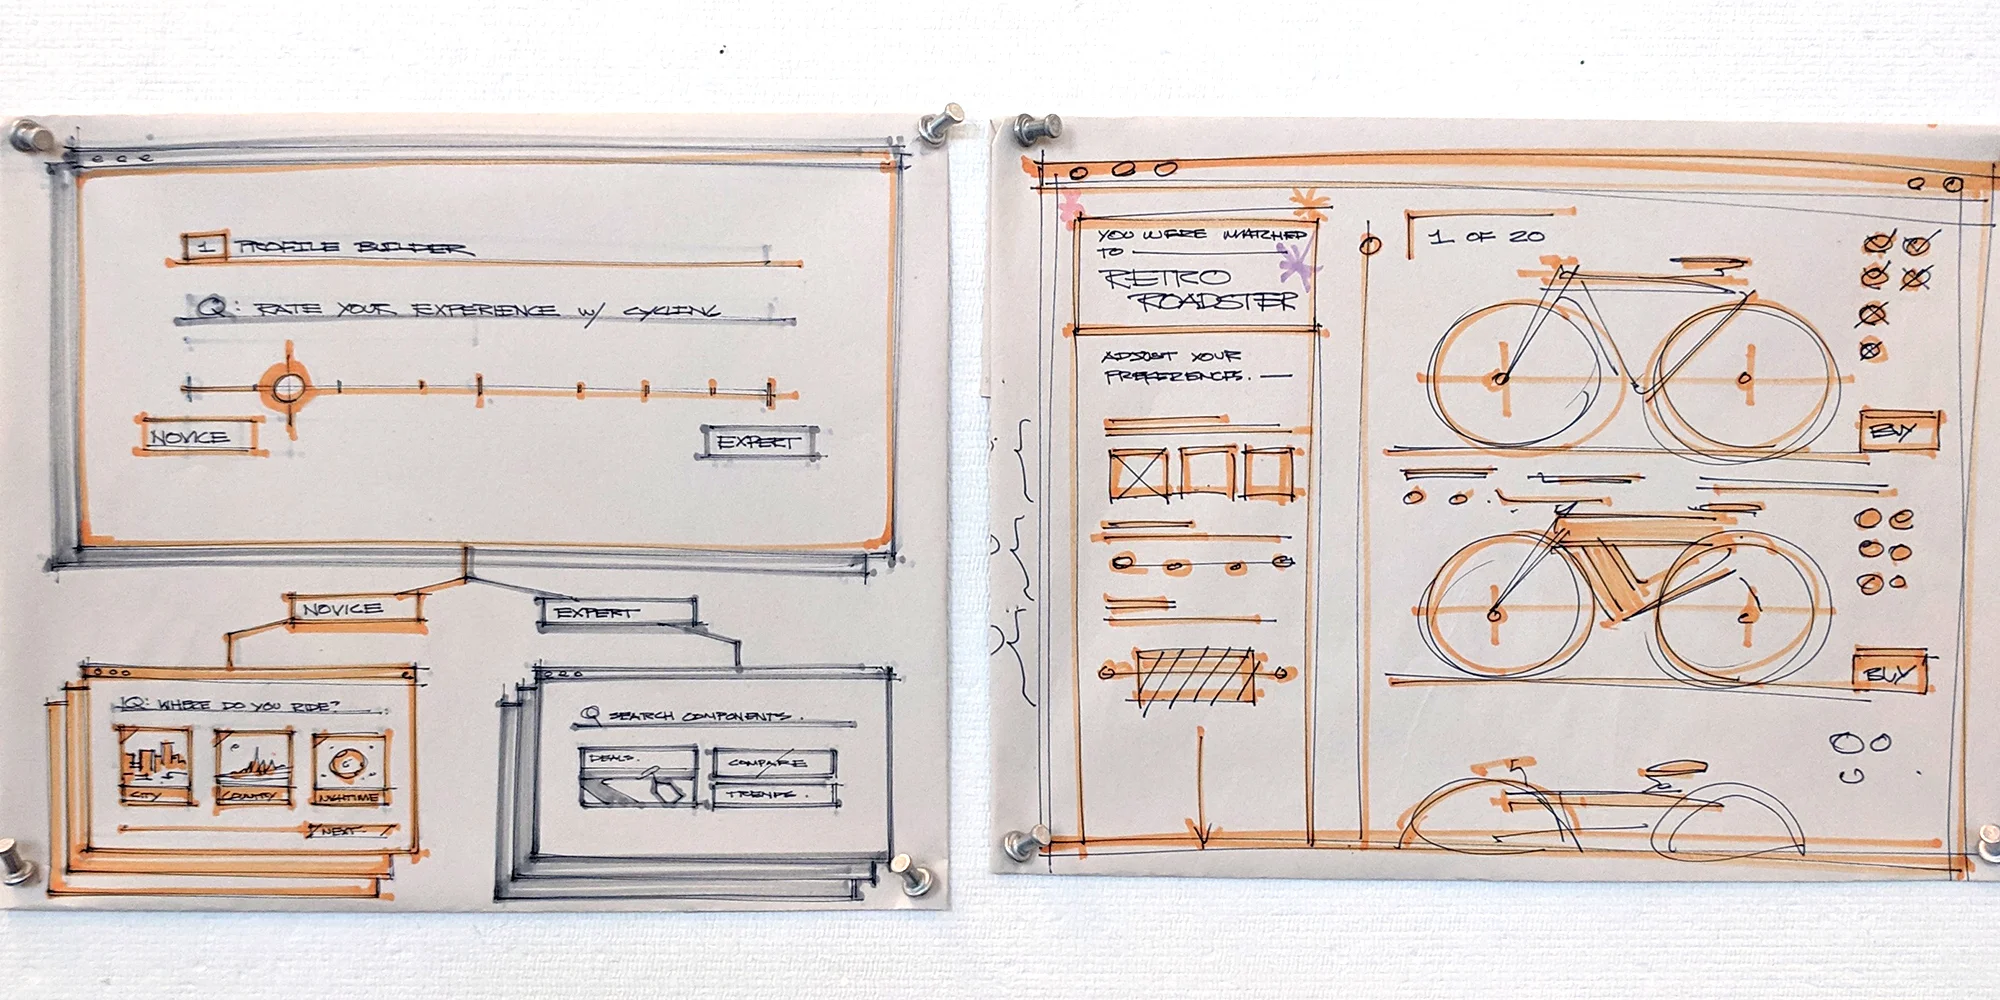 1 PROFILE BUILDER
Q: RATE YOUR EXPERIENCE W/ CYCLING
NOVICE
EXPERT
NOVICE
EXPERT
Q: WHERE DO YOU RIDE?
CITY
COUNTRY
NIGHTIME
NEXT
SEARCH COMPONENTS.
DEALS.
COMPARE
TRENDS.
YOU WERE MATCHED
TO
RETRO
ROADSTER
ADJUST YOUR
PREFERENCES.
1 OF 20
BUY
BUY